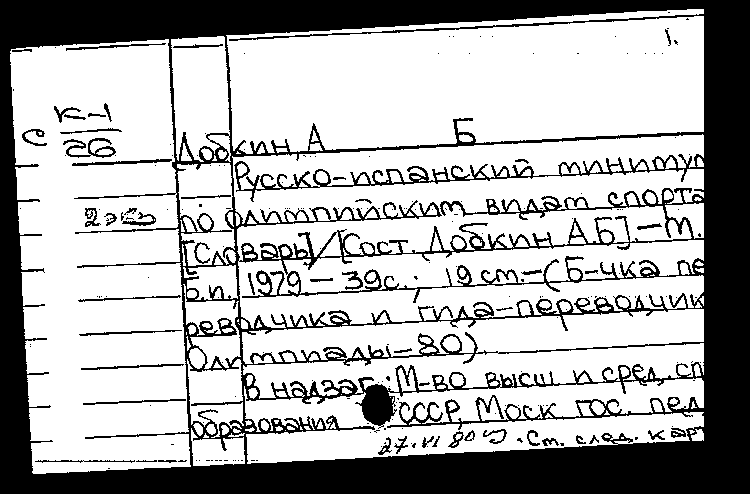 1.
С К-1
26
Добкин, А Б
Русско-испанский минимум
2 экз по олимпийским видам спорта
[Словарь]/[Сост. Добкин А.Б].-М.
Б.п., 1979.-39с.; 19 см.-(Б-чка пе
реводчика и гида-переводчик
Олимпиады-80)
В надзаг.: М-во высш и сред. сп
образования СССР, Моск гос. пед.
27.VI 80 . См. след. карт